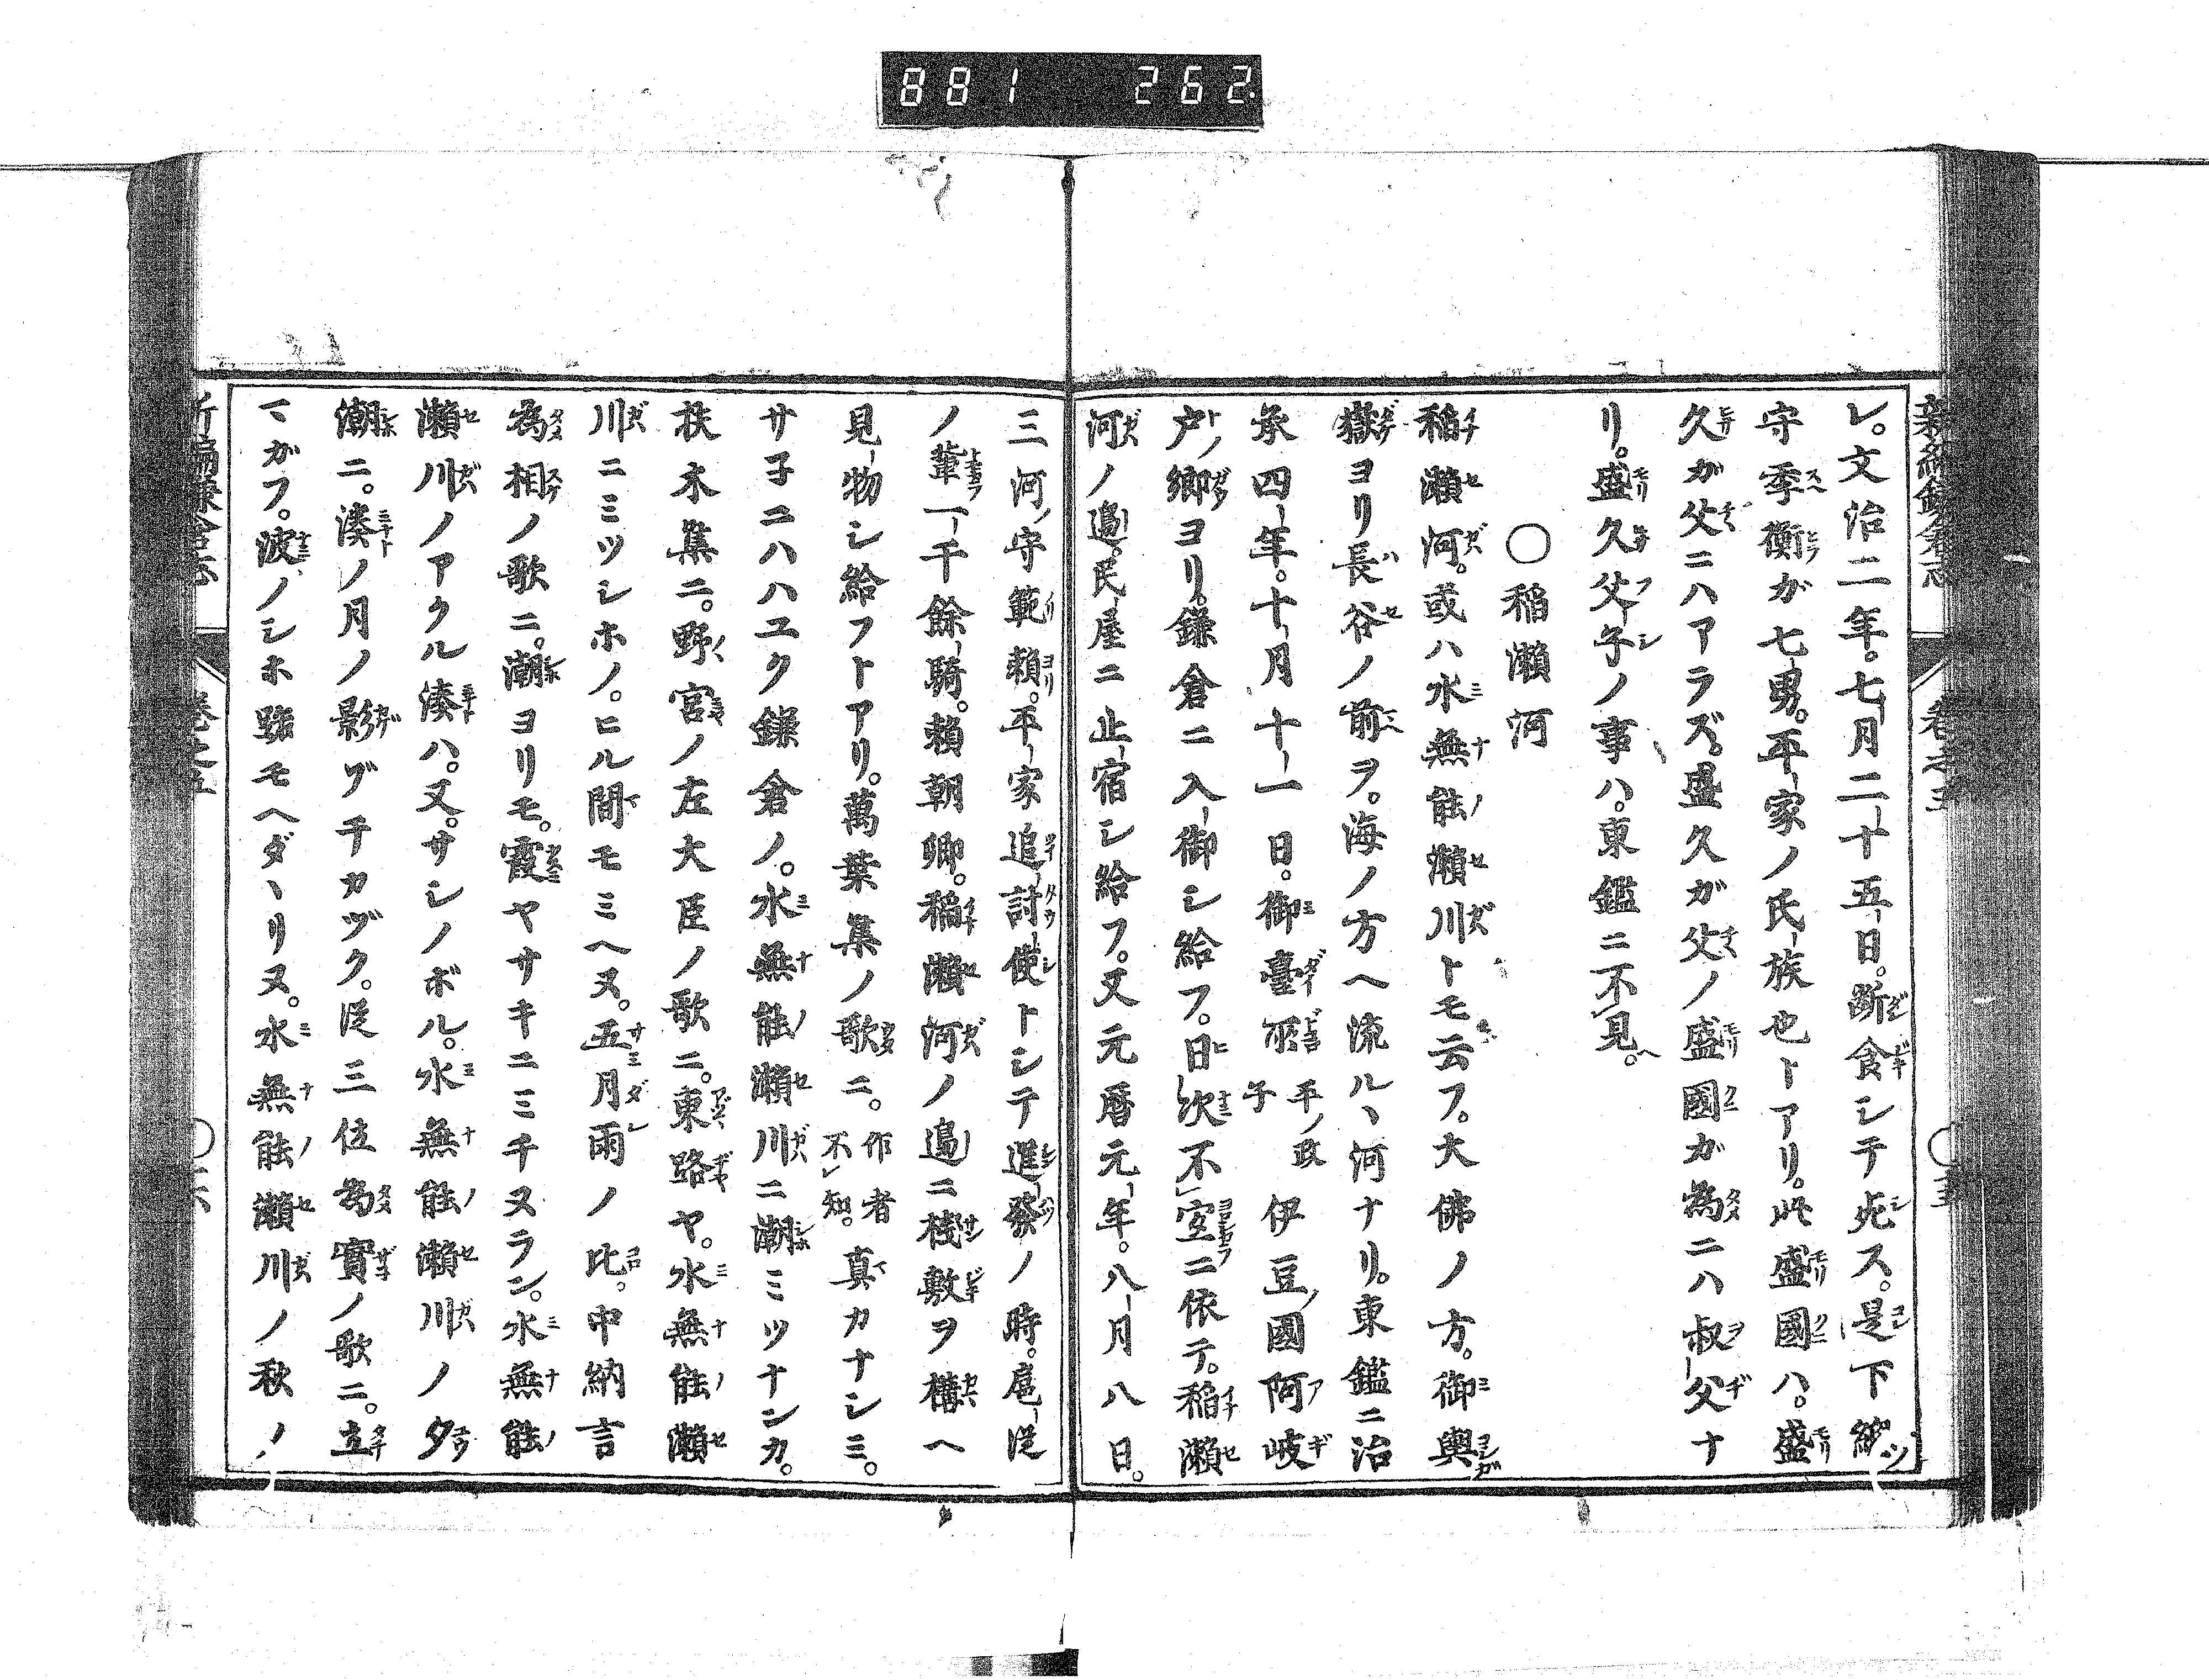 881 262
レ。文治二年。七月二十五日。斷食シテ死ス。是下總ツ
守季衡が七男。平家ノ氏族也トアリ。此盛國ハ。盛
久が父ニハアラズ。盛久が父ノ盛國が為ニハ叔父ナ
リ。盛久父子ノ事ハ。東鑑ニ不見。
○稲瀬河
稲瀬河。或ハ水無能瀬川トモ云フ。大佛ノ方。御輿
嶽ヨリ長谷ノ前ヲ。海ノ方へ流ル、河ナリ。東鑑ニ治
承四年。十月十一日。御臺所平ノ政子伊豆國阿岐
戸ノ郷ヨリ。鎌倉ニ入御シ給フ。日次不宜ニ依テ。稲瀬
河ノ邊。民屋ニ止宿シ給フ。又元暦元年。八月八日。
三河ノ守範頼。平家追討使トシテ進發ノ時。扈従
ノ輩一千餘騎。頼朝卿。稲瀬河ノ邊ニ棧敷ヲ構へ
見物シ給フトアリ。萬葉集ノ歌ニ。作者不レ知。真カナシミ。
サ子ニハハユク鎌倉ノ。水無能瀬川ニ潮ミツナンカ。
扶木集ニ。野宮ノ左大臣ノ歌ニ。東路ヤ。水無能瀬
川ニミツシホノ。ヒル間モミヘヌ。五月雨ノ比。中納言
為相ノ歌ニ。潮ヨリモ。霞ヤサキニミチヌラン。水無能
瀬川ノアクル湊ハ。又。サシノボル。水無能瀬川ノ夕
潮ニ。湊ノ月ノ影ゾチカヅク。従三位為實ノ歌ニ。立
マガフ。波ノシホ路モヘダヽリヌ。水無能瀬川ノ秋ノ